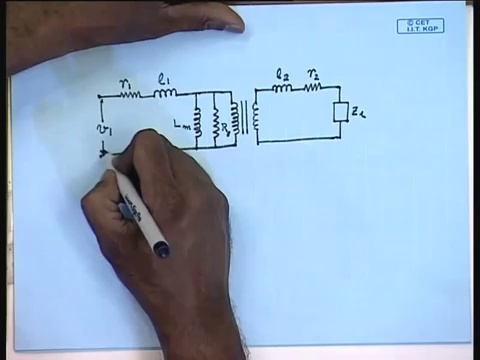 © CET
I.I.T. KGP
r₁ l₁ l₂ r₂
v₁ Lm Z_L